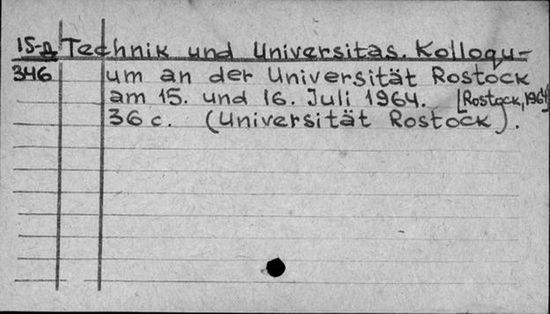 15-Д Technik und Universitas. Kolloqu-
346 um an der Universität Rostock
am 15. und 16. Juli 1964. [Rostock, 1964]
36 c. (Universität Rostock).